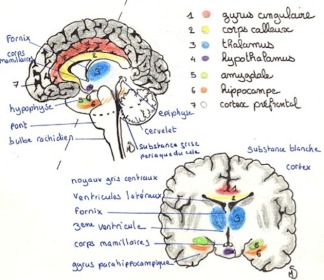 Fornix
corps
mamillaires
7
hypophyse
pont
bulbe rachidien
épiphyse
cervelet
Substance grise
périaqueducale
1 gyrus cingulaire
2 corps calleux
3 thalamus
4 hypothalamus
5 amygdale
6 hippocampe
7 cortex préfrontal
Substance blanche
cortex
noyaux gris centraux
Ventricules latéraux
Fornix
3ème ventricule
corps mamillaires
gyrus parahippocampique
1
2
3
3
5
6